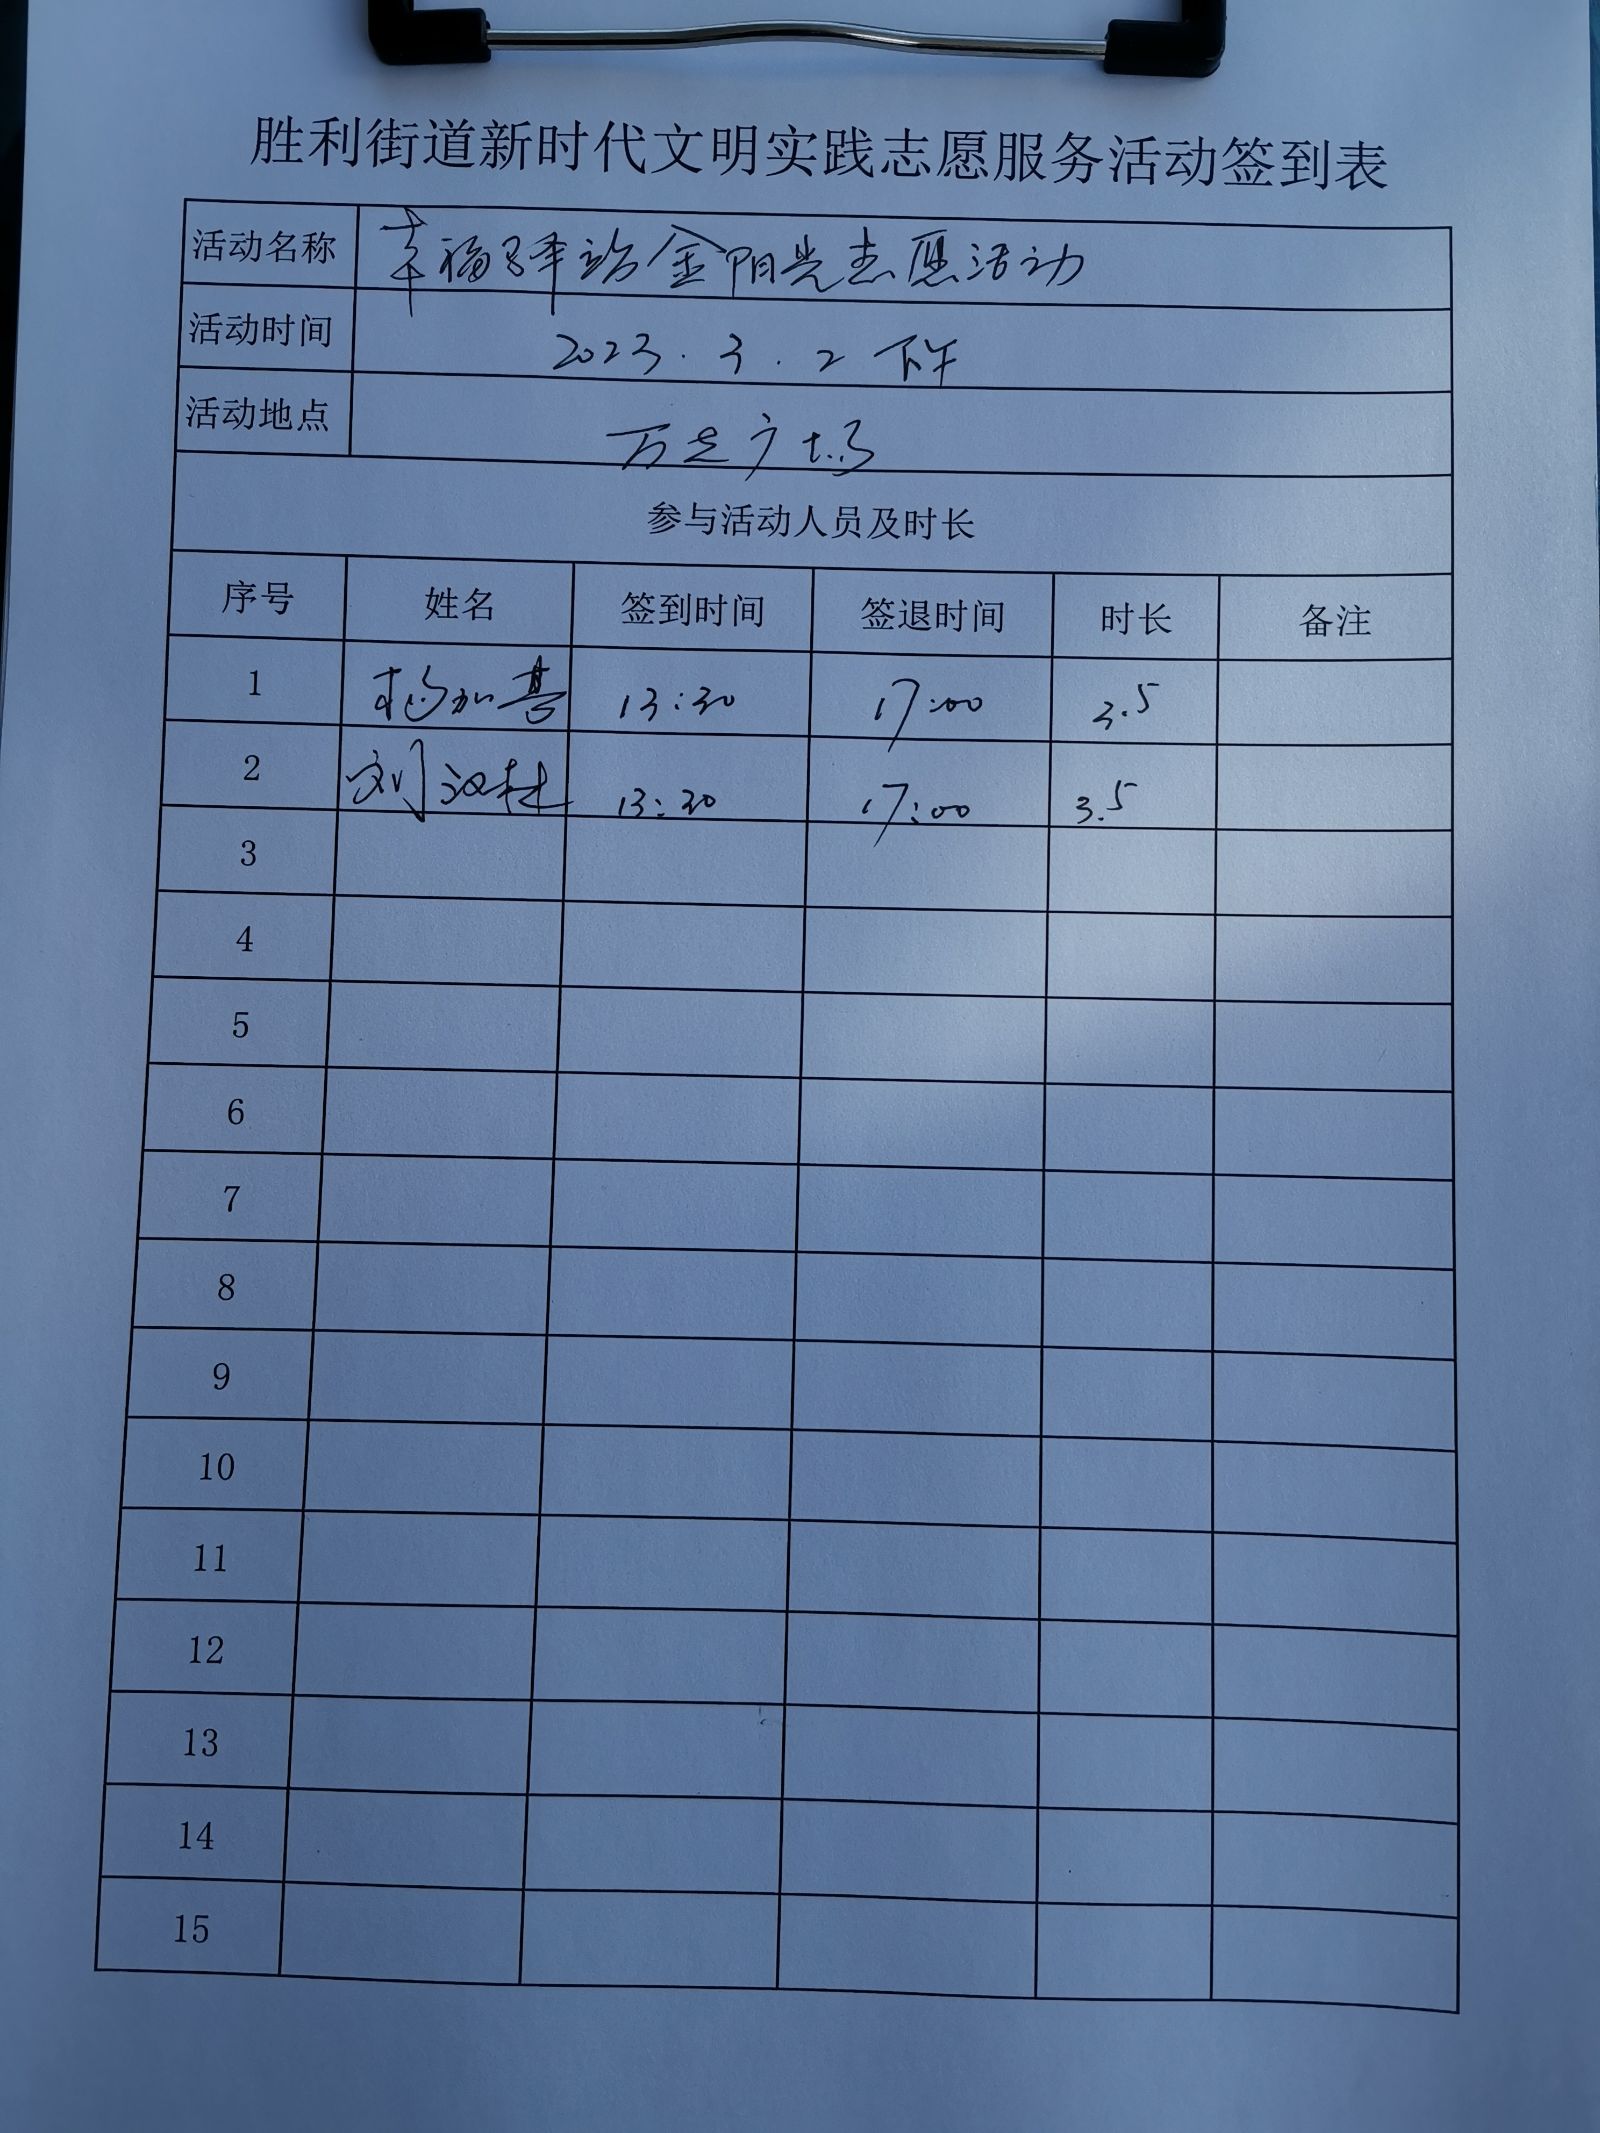 胜利街道新时代文明实践志愿服务活动签到表
活动名称 幸福驿站金阳光志愿活动
活动时间 2023.3.2 下午
活动地点 万达广场
参与活动人员及时长
序号 姓名 签到时间 签退时间 时长 备注
1 杨加喜 13:30 17:00 3.5
2 刘汉桂 13:30 17:00 3.5
3
4
5
6
7
8
9
10
11
12
13
14
15